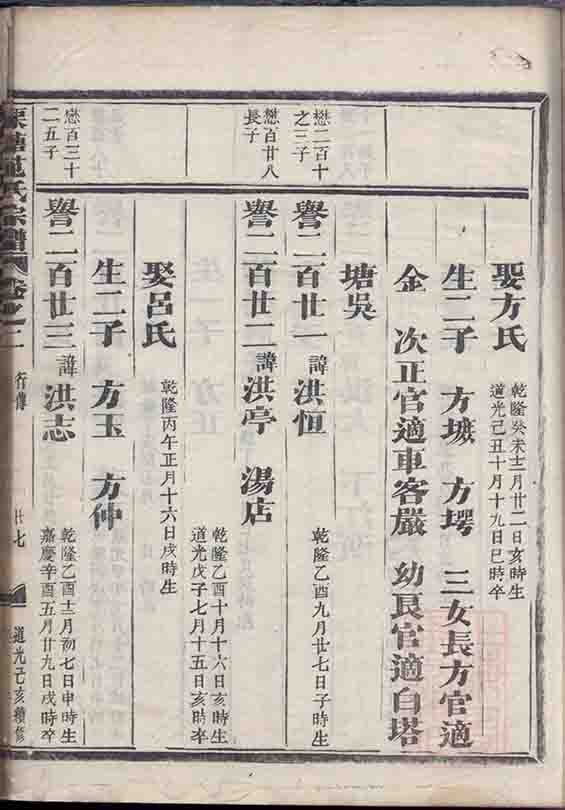 娶方氏
乾隆癸未十二月廿二日亥時生
道光己丑十月十九日巳時卒
生二子 方墟 方堮 三女長方官適
金 次正官適車客嚴 幼艮官適白塔
塘吳
懋二百十
之三子
譽二百廿一 諱洪恒
乾隆乙酉九月廿七日子時生
懋百廿八
長子
譽二百廿二 諱洪亭 湯店
乾隆乙酉十月十六日亥時生
道光戊子七月十五日亥時卒
娶呂氏
乾隆丙午正月十六日戌時生
生二子 方玉 方仲
懋百三十
二五子
譽二百廿三 諱洪志
乾隆乙酉十二月初七日申時生
嘉慶辛酉五月廿九日戌時卒
塘范氏宗譜 卷之二
行傳
廿七
道光己亥續修